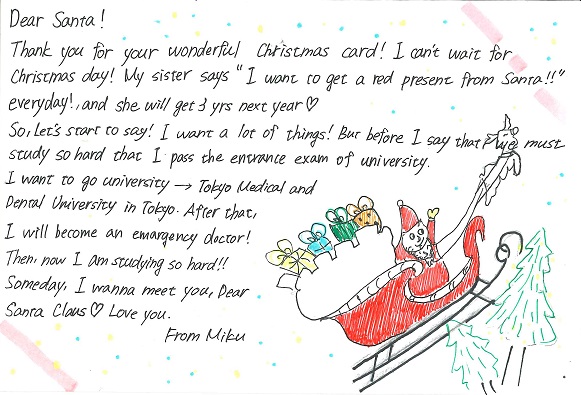 Dear Santa!
Thank you for your wonderful Christmas card! I can't wait for
Christmas day! My sister says "I want to get a red present from Santa!!"
everyday!, and she will get 3 yrs next year♡
So, Let's start to say! I want a lot of things! But before I say that, I must
study so hard that I pass the entrance exam of university.
I want to go university → Tokyo Medical and
Dental University in Tokyo. After that,
I will become an emargency doctor!
Then, now I am studying so hard!!
Someday, I wanna meet you, Dear
Santa Claus♡ Love you.
From Miku